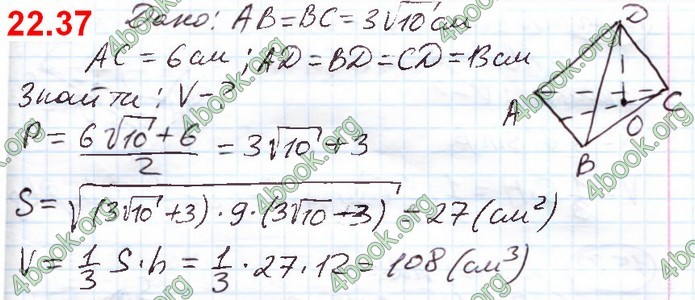 22.37 Дано: AB=BC=3√10 см
AC=6 см; AD=BD=CD=13 см
Знайти: V-?
P = (6√10+6)/2 = 3√10+3
S = √((3√10+3)·9·(3√10-3)) = 27 (см²)
V = 1/3 S·h = 1/3 · 27 · 12 = 108 (см³)
D
A
C
O
B
4book.org
4book.org
4book.org
4book.org
4book.org
4book.org
4book.org
4book.org